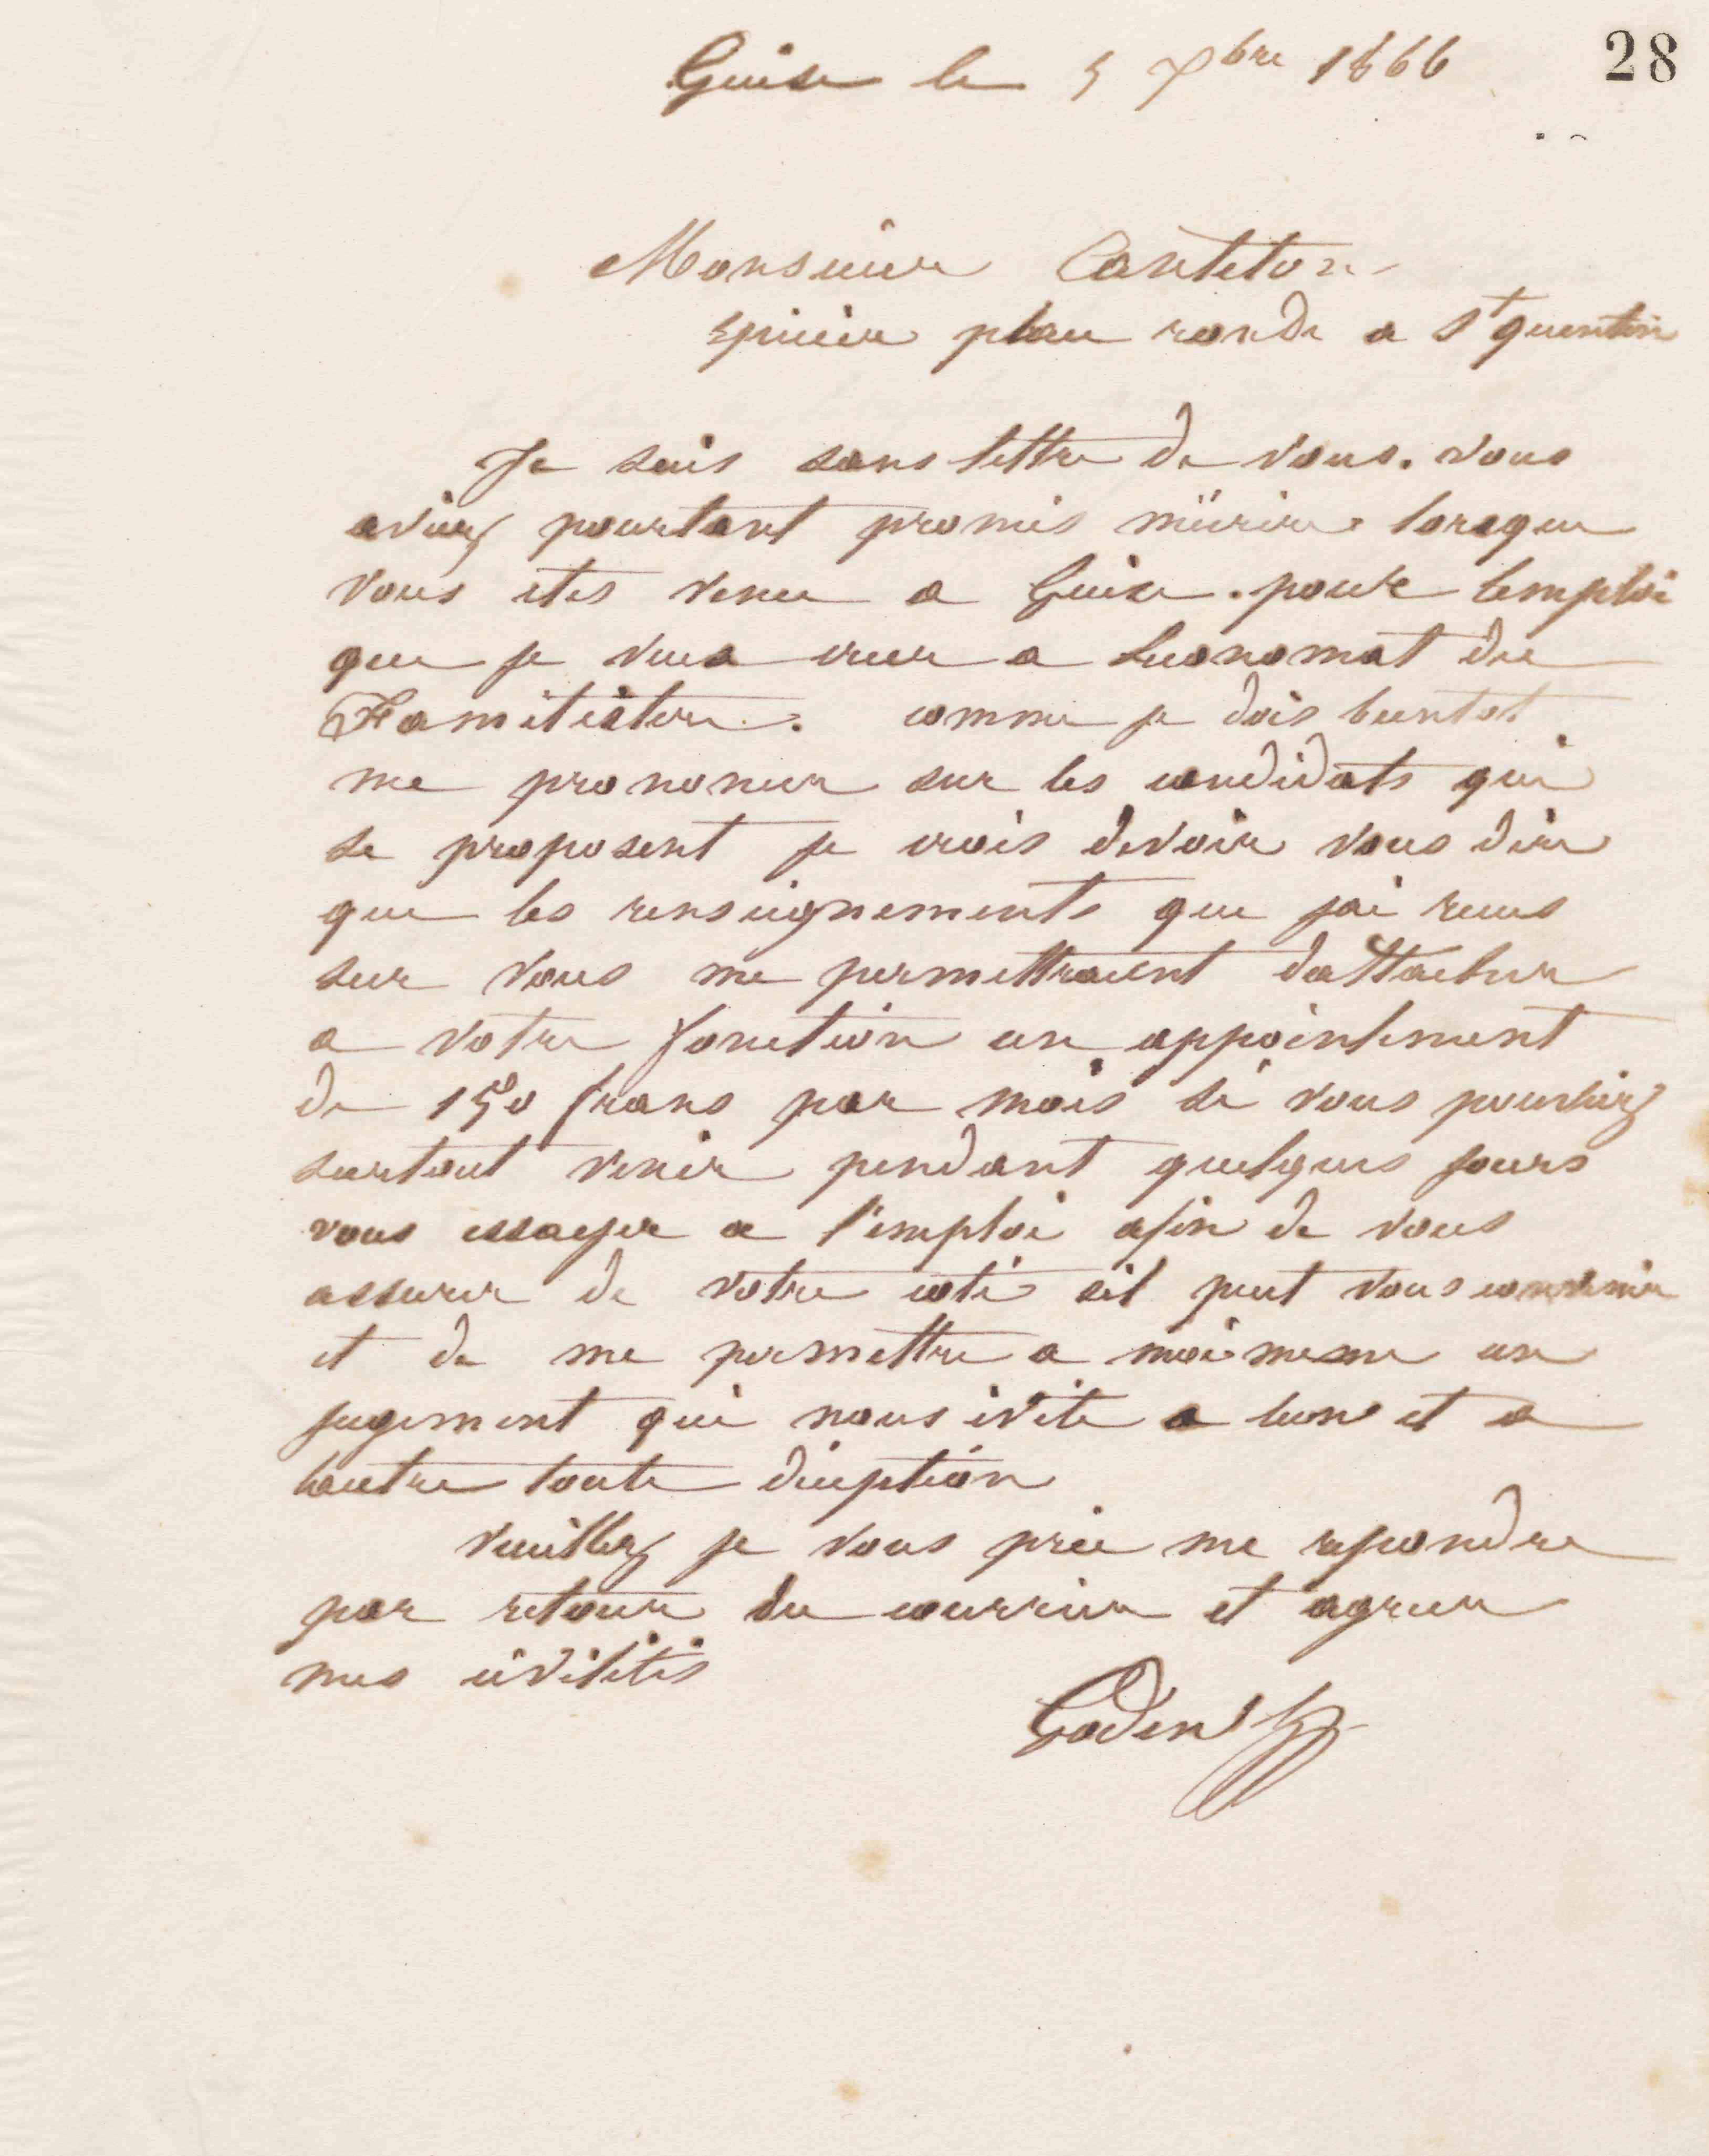 28
Guise le 5 7bre 1866
Monsieur Canteton
epicier place ronde a St quentin
Je suis sans lettre de vous. vous
aviez pourtant promis m'écrire lorsque
vous etes venu a Guise. pour lemploi
que je veux creer a leconomat du
Familistere. comme je dois bientot
me prononcer sur les candidats qui
se proposent je crois devoir vous dire
que les renseignements que jai recus
sur vous me permettraient dattacher
a votre fonction un appointement
de 150 francs par mois si vous pouviez
surtout venir pendant quelques jours
vous essayer a l'emploi afin de vous
assurer de votre coté sil peut vous convenir
et de me permettre a moi meme un
jugement qui nous évite a lun et a
lautre toute déception
veuillez je vous prie me repondre
par retour du courrier et agreer
mes civilités
Godin